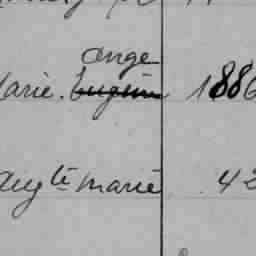 ange
Marie. Eugène 1886
Aug te marie 42